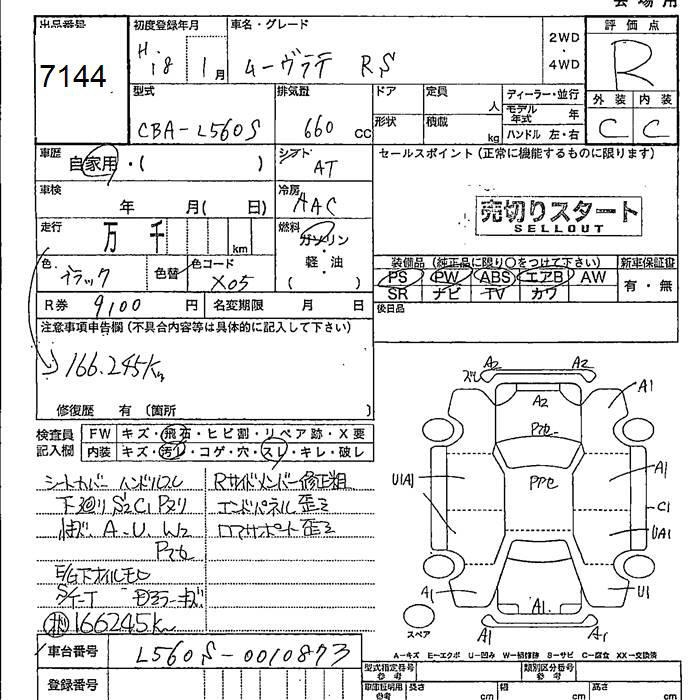 会場用
出品番号
7144
初度登録年月
H.18 1月
車名・グレード
ムーヴラテ RS
2WD
・
4WD
評価点
R
外装 内装
C C
型式
CBA-L560S
排気量
660 cc
ドア 定員 人
形状 積載 kg
ディーラー・並行
モデル年式 年
ハンドル 左・右
車歴
自家用・( )
シフト
AT
セールスポイント (正常に機能するものに限ります)
売切りスタート
SELLOUT
車検
年 月( 日)
冷房
AAC
走行
万 千 km
燃料
ガソリン
軽・油
( )
色
ブラック
色替
色コード
X05
装備品 (純正品に限り○をつけて下さい)
新車保証書
PS PW ABS エアB AW
SR ナビ TV カワ
有・無
R券 9100 円
名変期限 月 日
後日品
注意事項申告欄 (不具合内容等は具体的に記入して下さい)
166.245km
修復歴 有 〔箇所 〕
検査員
記入欄
FW キズ・飛石・ヒビ割・リペア跡・X要
内装 キズ・汚レ・コゲ・穴・スレ・キレ・破レ
シートカバー ハンドルスレ
下廻り S2C1 Pヌリ
A-U. W2
E/G下オイルモレ
166245km
Rサイドメンバー修正粗
エンドパネル歪ミ
ロアサポート歪ミ
A2 A2
A2
A1
PPe
U1A1
A1
C1
UA1
A1
A1
U1
A1 A1
スペア
A-キズ E-エクボ U-凹み W-補修跡 S-サビ C-腐食 XX-交換済
車台番号
L560S-0010873
型式指定番号
参考
類別区分番号
参考
登録番号
車庫証明用
参考
長さ cm
幅 cm
高さ cm